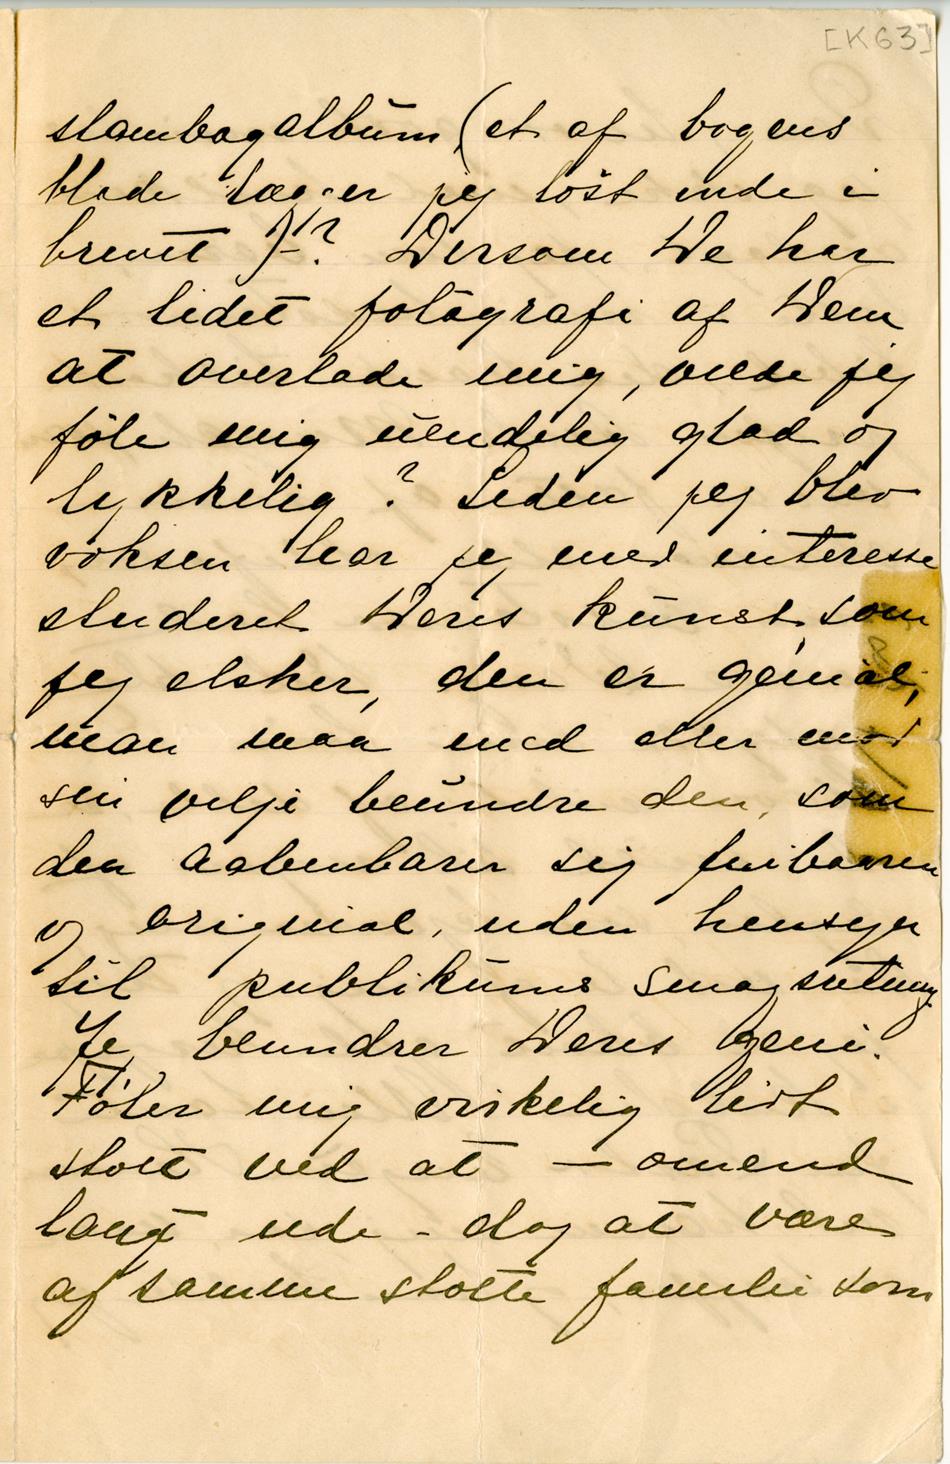 [K63]
stambogalbum, (et af bogens
blade lægger jeg löst inde i
brevet)-? Dersom De har
et lidet fotografi af Dem
at overlade mig, vilde jeg
föle mig uendelig glad og
lykkelig? Siden jeg blev
voksen har jeg med interesse
studeret Deres kunst, som
jeg elsker, den er genial,
man maa med eller mod
sin vilje beundre den, som
den aabenbarer sig fribaaren
og original, uden hensyn
til publikums smagsretning.
Jeg beundrer Deres geni.
Föler mig virkelig lidt
stolt ved at — omend
langt ude - dog at være
af samme stolte familie som